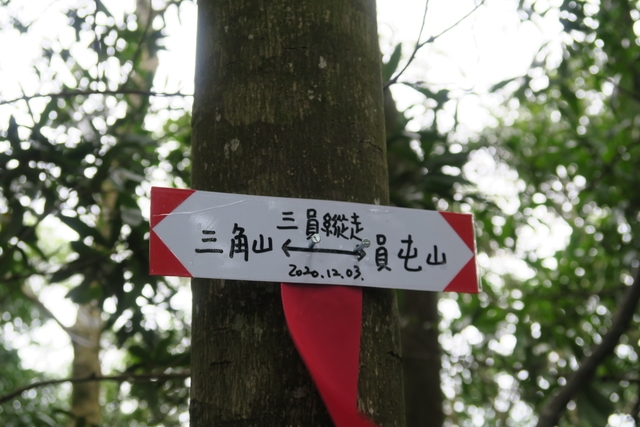 三員縱走
三角山 ←→ 員屯山
2020.12.03.